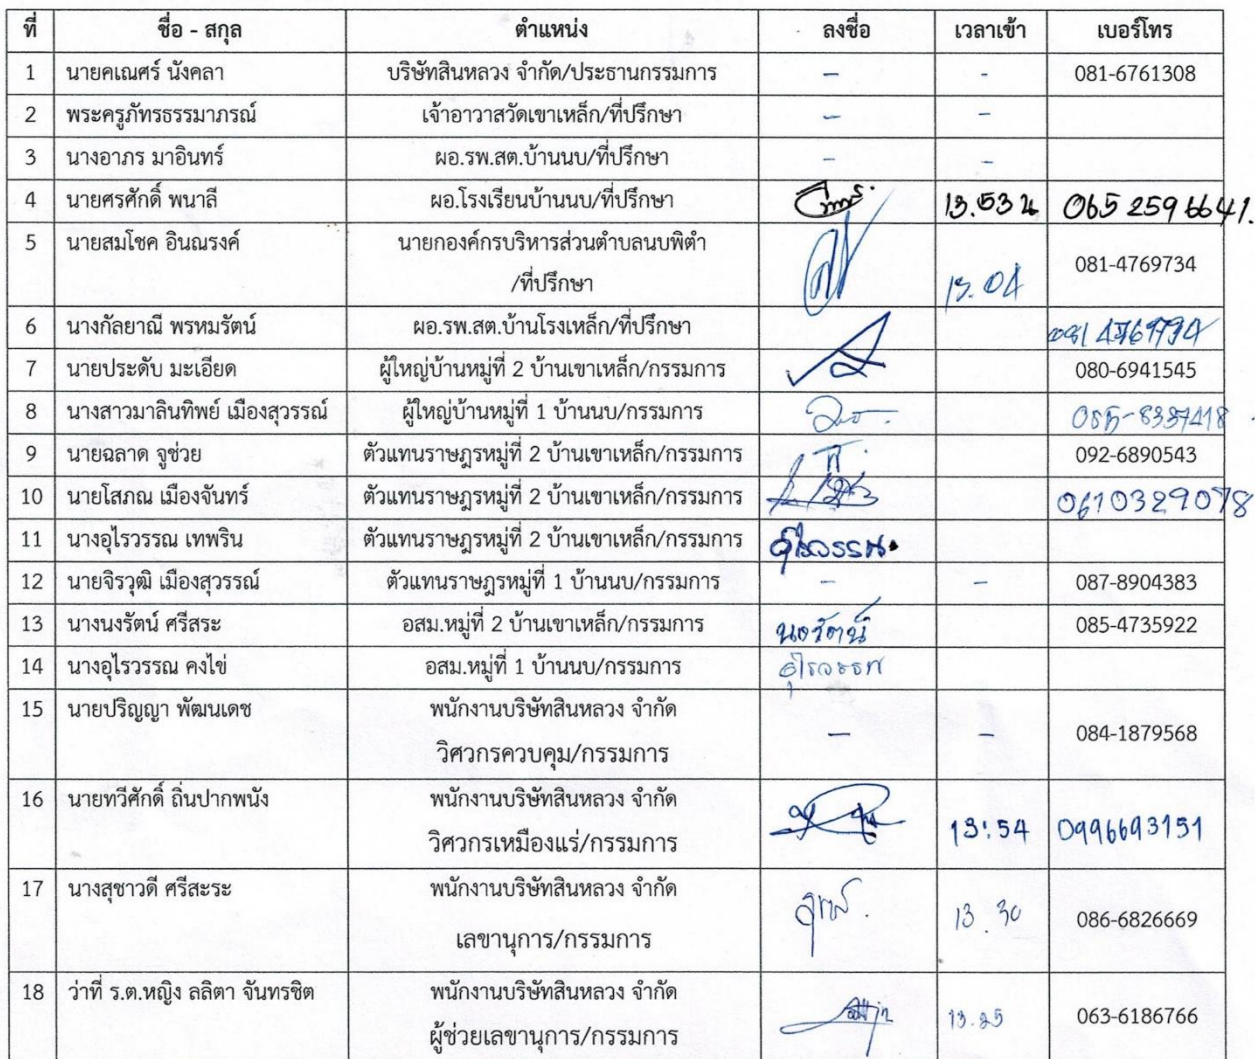 ที่ ชื่อ - สกุล ตำแหน่ง ลงชื่อ เวลาเข้า เบอร์โทร
1 นายคเณศร์ นังคลา บริษัทสินหลวง จำกัด/ประธานกรรมการ - - 081-6761308
2 พระครูภัทรธรรมาภรณ์ เจ้าอาวาสวัดเขาเหล็ก/ที่ปรึกษา - -
3 นางอาภร มาอินทร์ ผอ.รพ.สต.บ้านนบ/ที่ปรึกษา - -
4 นายศรศักดิ์ พนาลี ผอ.โรงเรียนบ้านนบ/ที่ปรึกษา 13.53 น 065 2596641.
5 นายสมโชค อินณรงค์ นายกองค์กรบริหารส่วนตำบลนบพิตำ 13.04 081-4769734
/ที่ปรึกษา
6 นางกัลยาณี พรหมรัตน์ ผอ.รพ.สต.บ้านโรงเหล็ก/ที่ปรึกษา
7 นายประดับ มะเอียด ผู้ใหญ่บ้านหมู่ที่ 2 บ้านเขาเหล็ก/กรรมการ 080-6941545
8 นางสาวมาลินทิพย์ เมืองสุวรรณ์ ผู้ใหญ่บ้านหมู่ที่ 1 บ้านนบ/กรรมการ
9 นายฉลาด จูช่วย ตัวแทนราษฎรหมู่ที่ 2 บ้านเขาเหล็ก/กรรมการ 092-6890543
10 นายโสภณ เมืองจันทร์ ตัวแทนราษฎรหมู่ที่ 2 บ้านเขาเหล็ก/กรรมการ 0610329078
11 นางอุไรวรรณ เทพริน ตัวแทนราษฎรหมู่ที่ 2 บ้านเขาเหล็ก/กรรมการ อุไรวรรณ
12 นายจิรวุฒิ เมืองสุวรรณ์ ตัวแทนราษฎรหมู่ที่ 1 บ้านนบ/กรรมการ - - 087-8904383
13 นางนงรัตน์ ศรีสระ อสม.หมู่ที่ 2 บ้านเขาเหล็ก/กรรมการ นงรัตน์ 085-4735922
14 นางอุไรวรรณ คงไข่ อสม.หมู่ที่ 1 บ้านนบ/กรรมการ อุไรวรรณ
15 นายปริญญา พัฒนเดช พนักงานบริษัทสินหลวง จำกัด - - 084-1879568
วิศวกรควบคุม/กรรมการ
16 นายทวีศักดิ์ ถิ่นปากพนัง พนักงานบริษัทสินหลวง จำกัด 13:54 0996693151
วิศวกรเหมืองแร่/กรรมการ
17 นางสุชาวดี ศรีสะระ พนักงานบริษัทสินหลวง จำกัด 13.30 086-6826669
เลขานุการ/กรรมการ
18 ว่าที่ ร.ต.หญิง ลลิตา จันทรชิต พนักงานบริษัทสินหลวง จำกัด 13.25 063-6186766
ผู้ช่วยเลขานุการ/กรรมการ